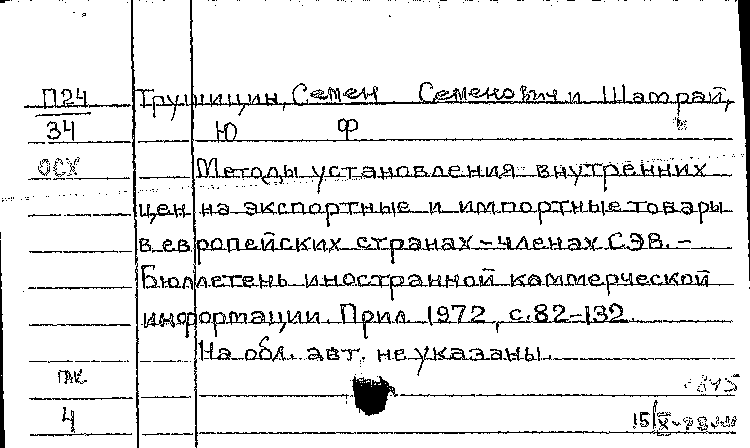 П24 Трушицин, Семен Семенович и Шатрай,
34 Ю Ф
ОСХ Методы установления внутренних
цен на экспортные и импортные товары
в европейских странах-членах СЭВ. –
Бюллетень иностранной каммерческой
информации. Прил. 1972, с. 82–132.
На обл. авт. не указаны.
4 15/IX-